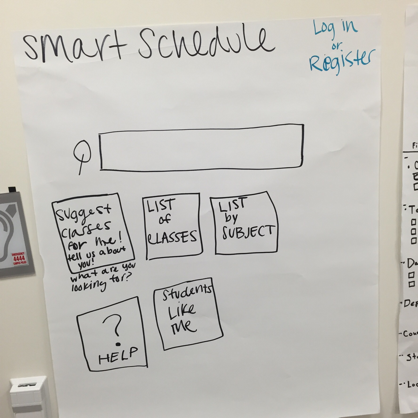 smart Schedule
Log in
or
Register
suggest
classes
for me!
tell us about
you!
what are you
looking for?
LIST
of
CLASSES
LIST
by
SUBJECT
?
HELP
Students
Like
Me